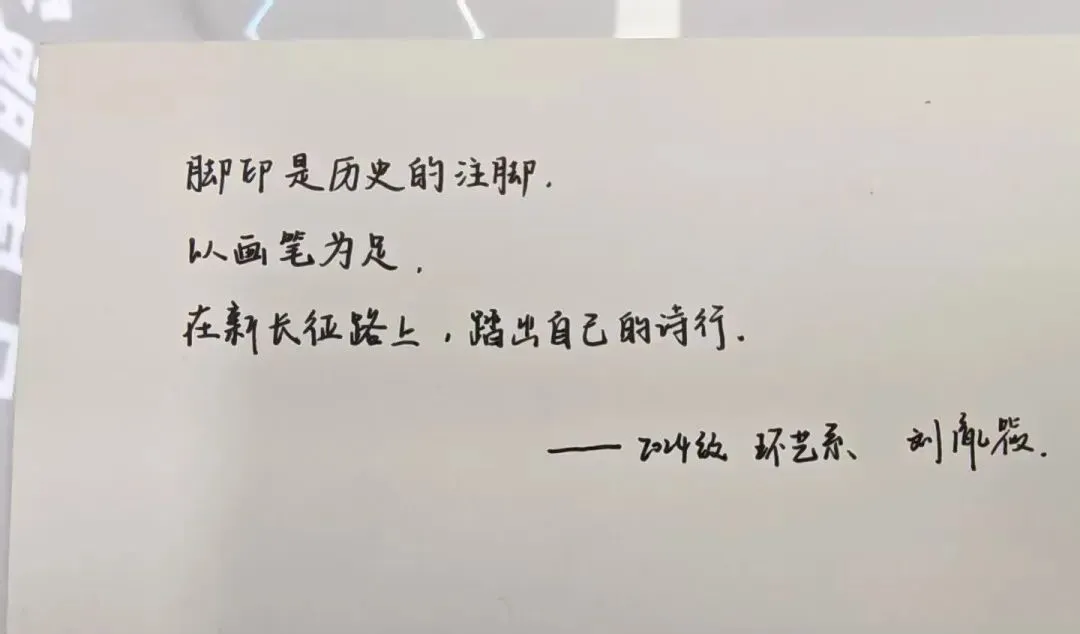 脚印是历史的注脚.
以画笔为足,
在新长征路上,踏出自己的诗行.
——2024级 环艺系 刘